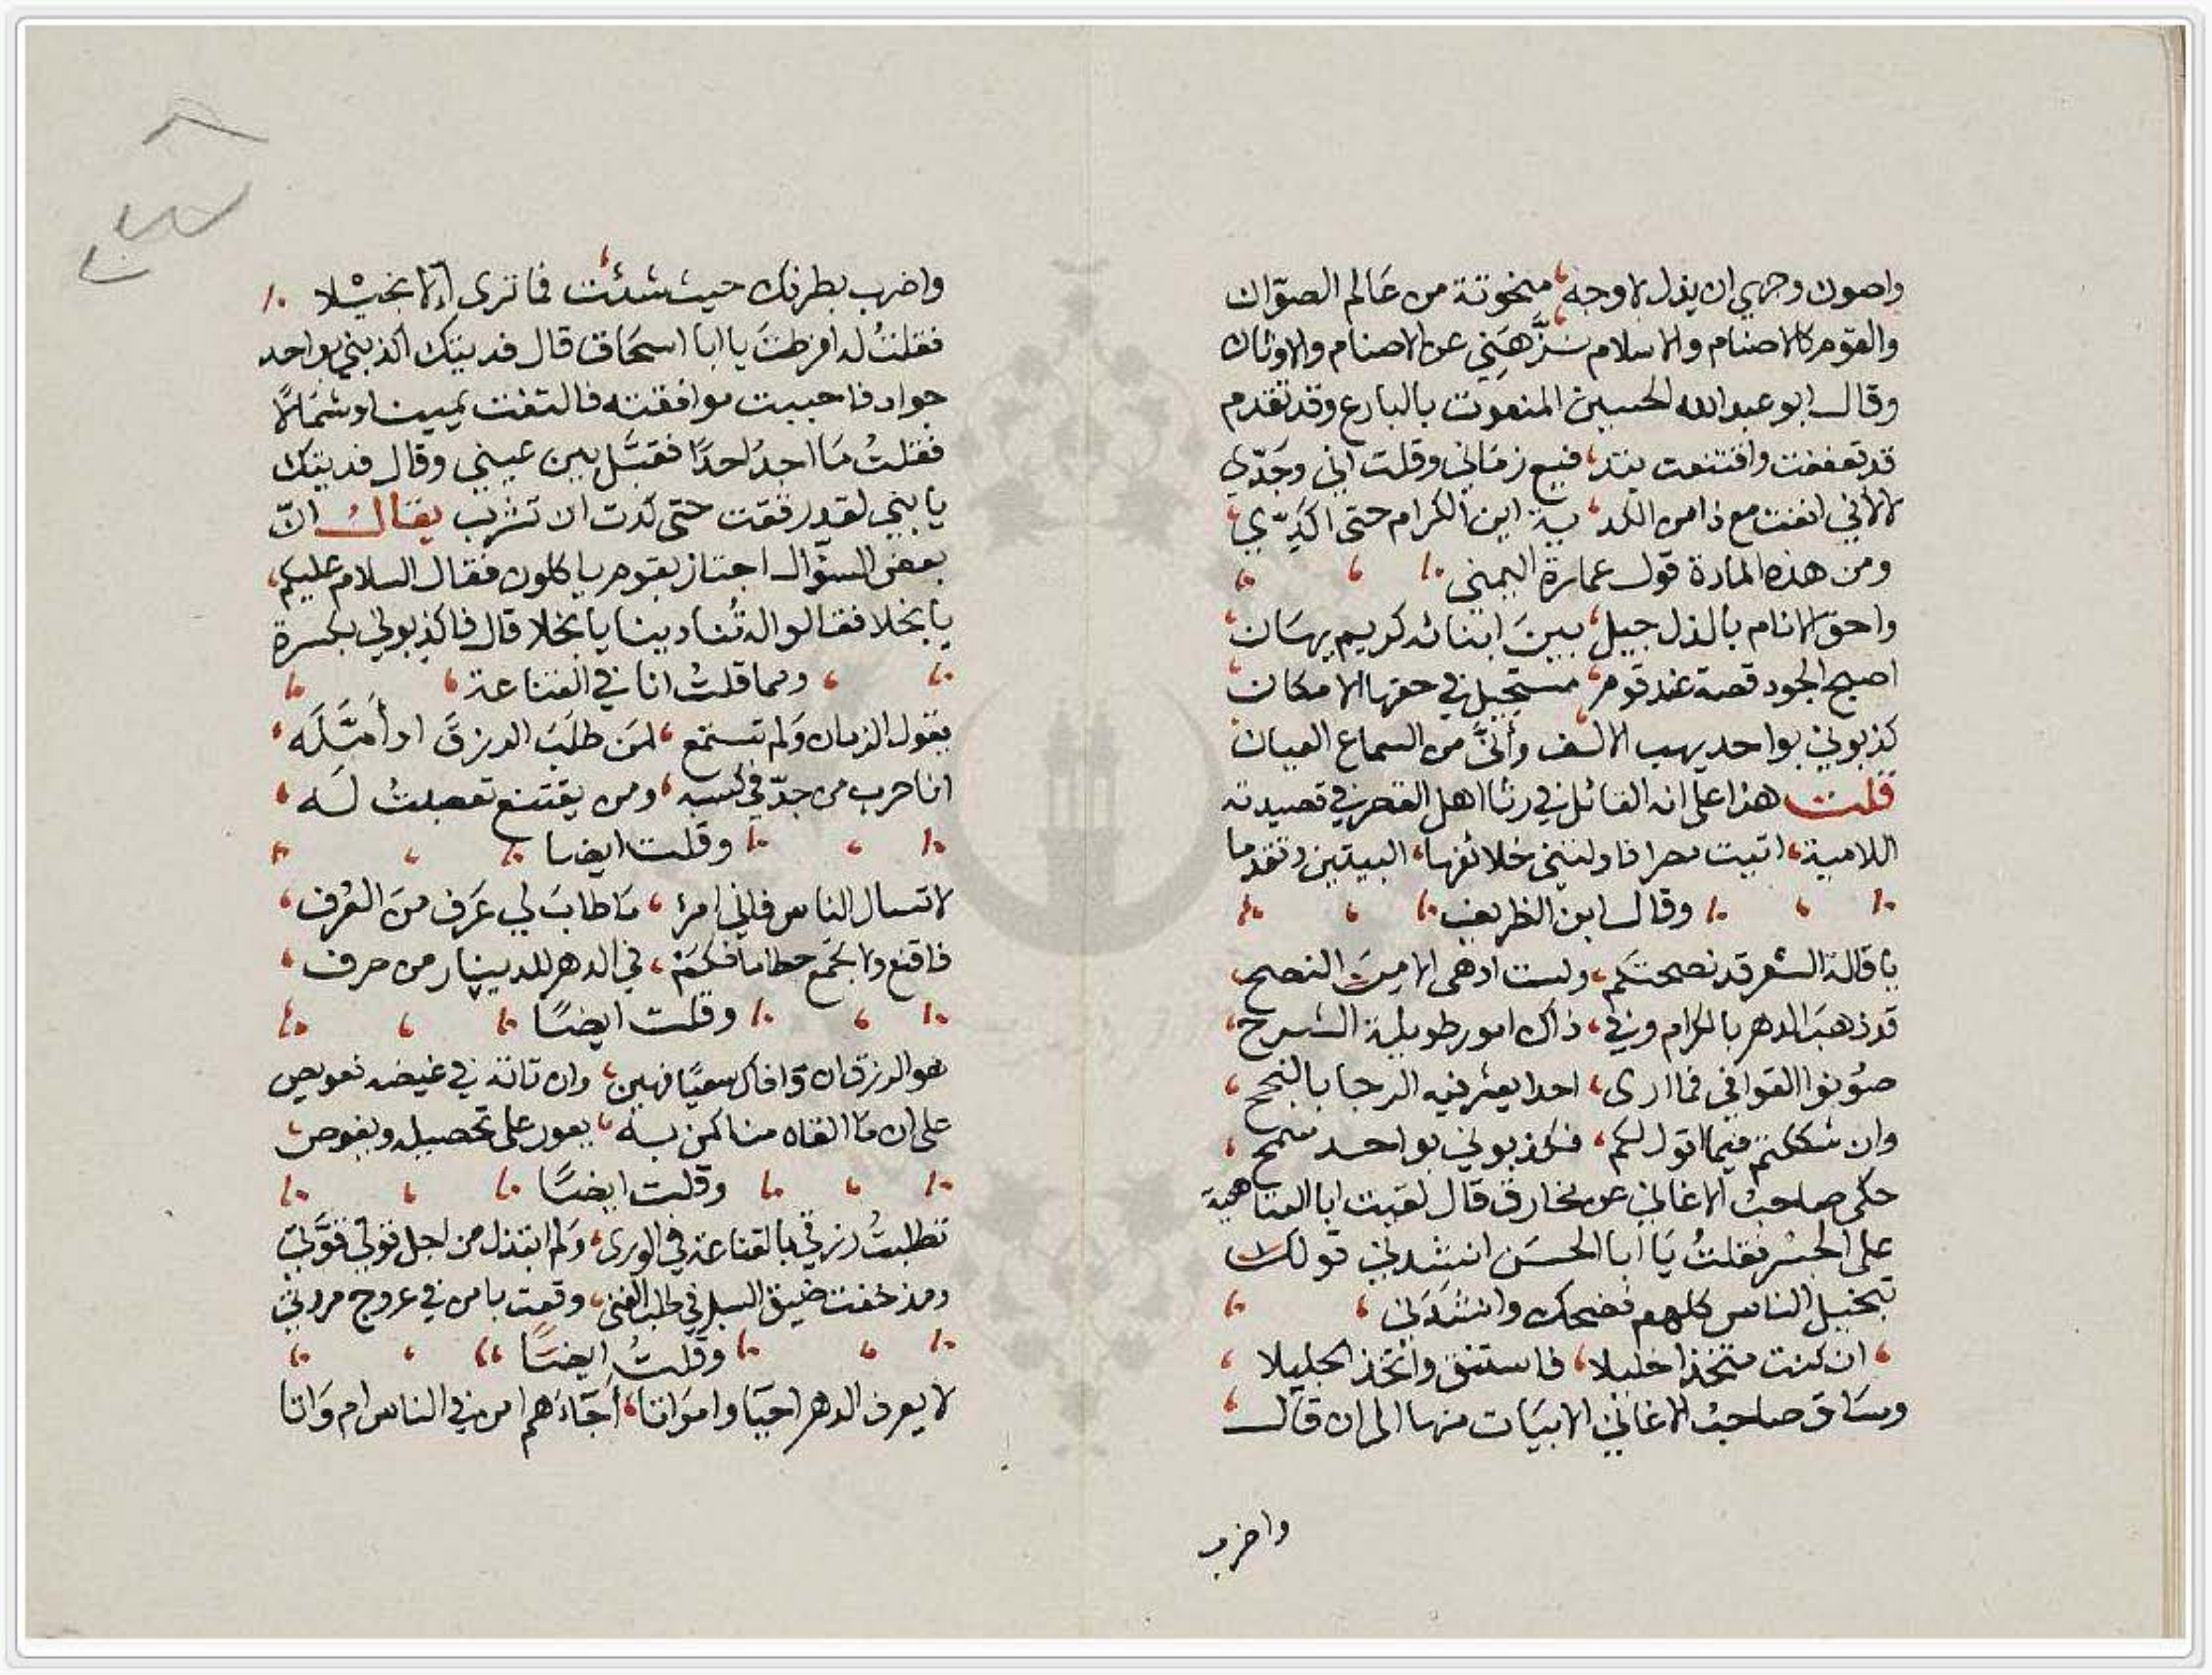 واصون وجهي ان يذل لاوجه، منحوتة من عالم الصوّان
والقوم كالاصنام والاسلام نزّهني عن الاصنام والاوثان
وقال ابو عبد الله الحسين المنعوت بالبارع وقد تقدم
قد تعففت واقتنعت بتد، فيع زماني وقلت اني وجَدّي
لا لأني انفت مع ذا من الكد، ية اين الكرام حتى اكدّي،
ومن هذه المادة قول عمارة اليمني
واحق الانام بالذل جيل، بينَ ابنائه كريم يهان
اصبح الجود قصة عند قوم، مستحيل في حقها الامكان
كذبوني بواحد يهب الالف وأنّى من السماع العيان
قلت هذا على انه القائل في رثا اهل القصر في قصيدته
اللامية، اتيت مصرا فاولتني خلائفها، البيتين وتقدما
وقال ابن الظريف
يا قالة الشعر قد نصحتكم، ولست ادهى الا من النصح
قد ذهبَ الدهر بالكرام وفي، ذاك امور طويلة الشرح،
صُونوا القوافي فما ارى، احدا يعثر فيه الرجا بالنجح،
وان شككتم فيما اقول لكم، فكذبوني بواحد سمح،
حكى صاحبُ الاغاني عن مخارق قال لقيت ابا العتاهية
على الجسر فقلتُ يَا ابا الحسَن انشدني قولك
تبخيل الناس كلهم فضحك وانشدَني،
، ان كنت متخذا خليلا، فاستنق واتخذ الجليلا،
وسَاق صاحبُ الاغاني الابيَات منها الى ان قال
واضرب
واضرب بطرفك حيث شئت فما ترى إلا بخيلا
فقلتُ له افرطتَ يا ابا اسحَاق قال فديتك اكذبني بواحد
جواد فاحببت موافقته فالتفت يمينا وشمَالاً
فقلتُ مَا اجدُ احدًا فقبّل بين عيني وقال فديتك
يا بني لقد رققت حتى كدت ان تشرب يقال انّ
بعض السؤّال اجتاز بقوم ياكلون فقال السلام عليكم،
يا بخلا فقالوا له تُنادينا يا بخلا قال فاكذبوني بكسرة
ومما قلتُ انا في القناعة
يقول الزمان وَلم تستمع، لمَن طلَبَ الرزقَ او أمّلَه،
انا حرب من جدّ في كسبه، ومن يقتنع تعصبتُ لَه،
وقلت ايضا
لا تسال الناس فاني امرؤ، مَا طابَ لي عَرَف منَ العُرف،
فاقنع ولا تجمَع حطاما فكمْ، في الدهر للدينار من صرف،
وقلت ايضًا
هو الرزق ان وَافاك سعيًا فهين، وان تاته في غيضه تعويص
على ان مَا القاه منا كمن به، يعور على تحصيله ويغوص،
وقلت ايضًا
تطلبتُ رزقي بالقناعة في الورى، وَلم ابتذل من اجل قوتي قوَّتي
ومذ خفت ضيق السبل في طلب الغنى، وقعت بامن في عروج مروتي
وقلتُ ايضًا
لا يعرف الدهر احيَا وامواتا، أجَاءَهم امن في الناس ام وَاتا